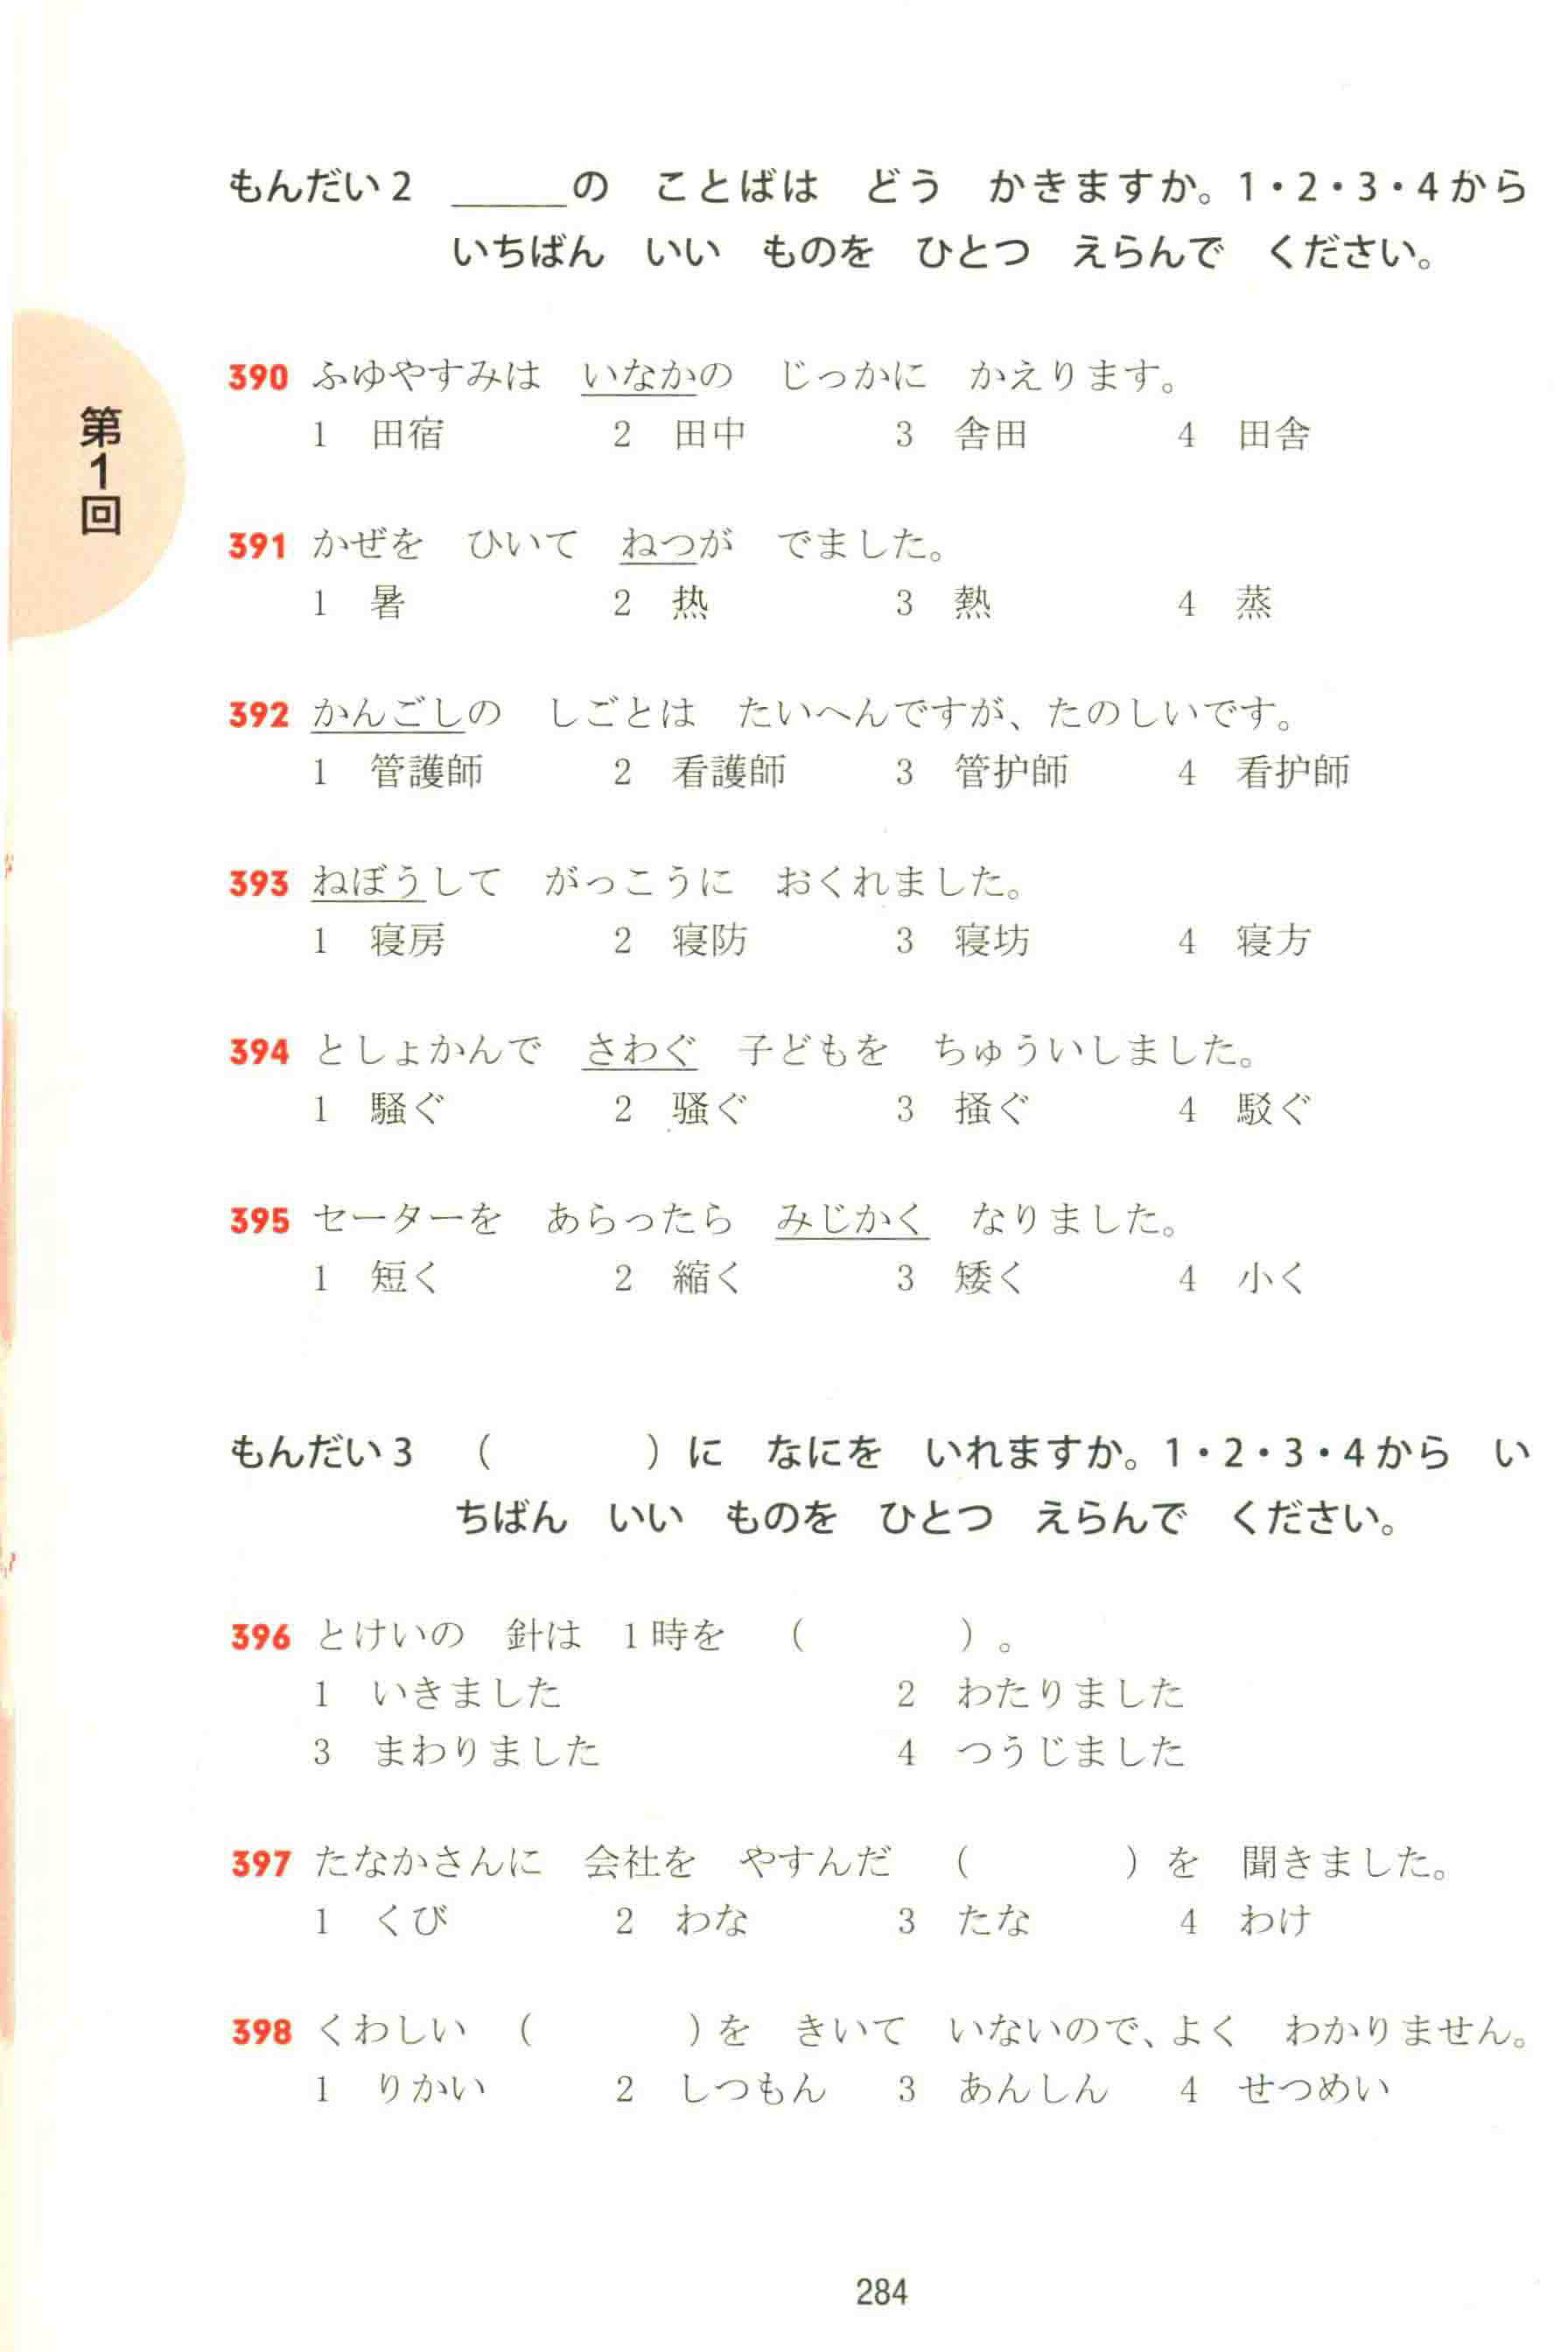 もんだい2　＿＿＿の　ことばは　どう　かきますか。1・2・3・4から
いちばん　いい　ものを　ひとつ　えらんで　ください。
第1回
390 ふゆやすみは　いなかの　じっかに　かえります。
1　田宿　2　田中　3　舎田　4　田舎
391 かぜを　ひいて　ねつが　でました。
1　暑　2　热　3　熱　4　蒸
392 かんごしの　しごとは　たいへんですが、たのしいです。
1　管護師　2　看護師　3　管护師　4　看护師
393 ねぼうして　がっこうに　おくれました。
1　寝房　2　寝防　3　寝坊　4　寝方
394 としょかんで　さわぐ　子どもを　ちゅういしました。
1　騒ぐ　2　骚ぐ　3　掻ぐ　4　駁ぐ
395 セーターを　あらったら　みじかく　なりました。
1　短く　2　縮く　3　矮く　4　小く
もんだい3　（　　　）に　なにを　いれますか。1・2・3・4から　い
ちばん　いい　ものを　ひとつ　えらんで　ください。
396 とけいの　針は　1時を　（　　　）。
1　いきました　2　わたりました
3　まわりました　4　つうじました
397 たなかさんに　会社を　やすんだ　（　　　）を　聞きました。
1　くび　2　わな　3　たな　4　わけ
398 くわしい　（　　　）を　きいて　いないので、よく　わかりません。
1　りかい　2　しつもん　3　あんしん　4　せつめい
284